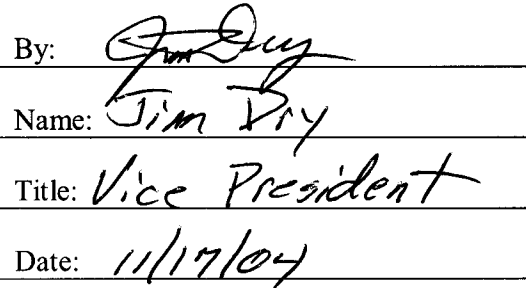 By: Jim Dry
Name: Jim Dry
Title: Vice President
Date: 11/17/04